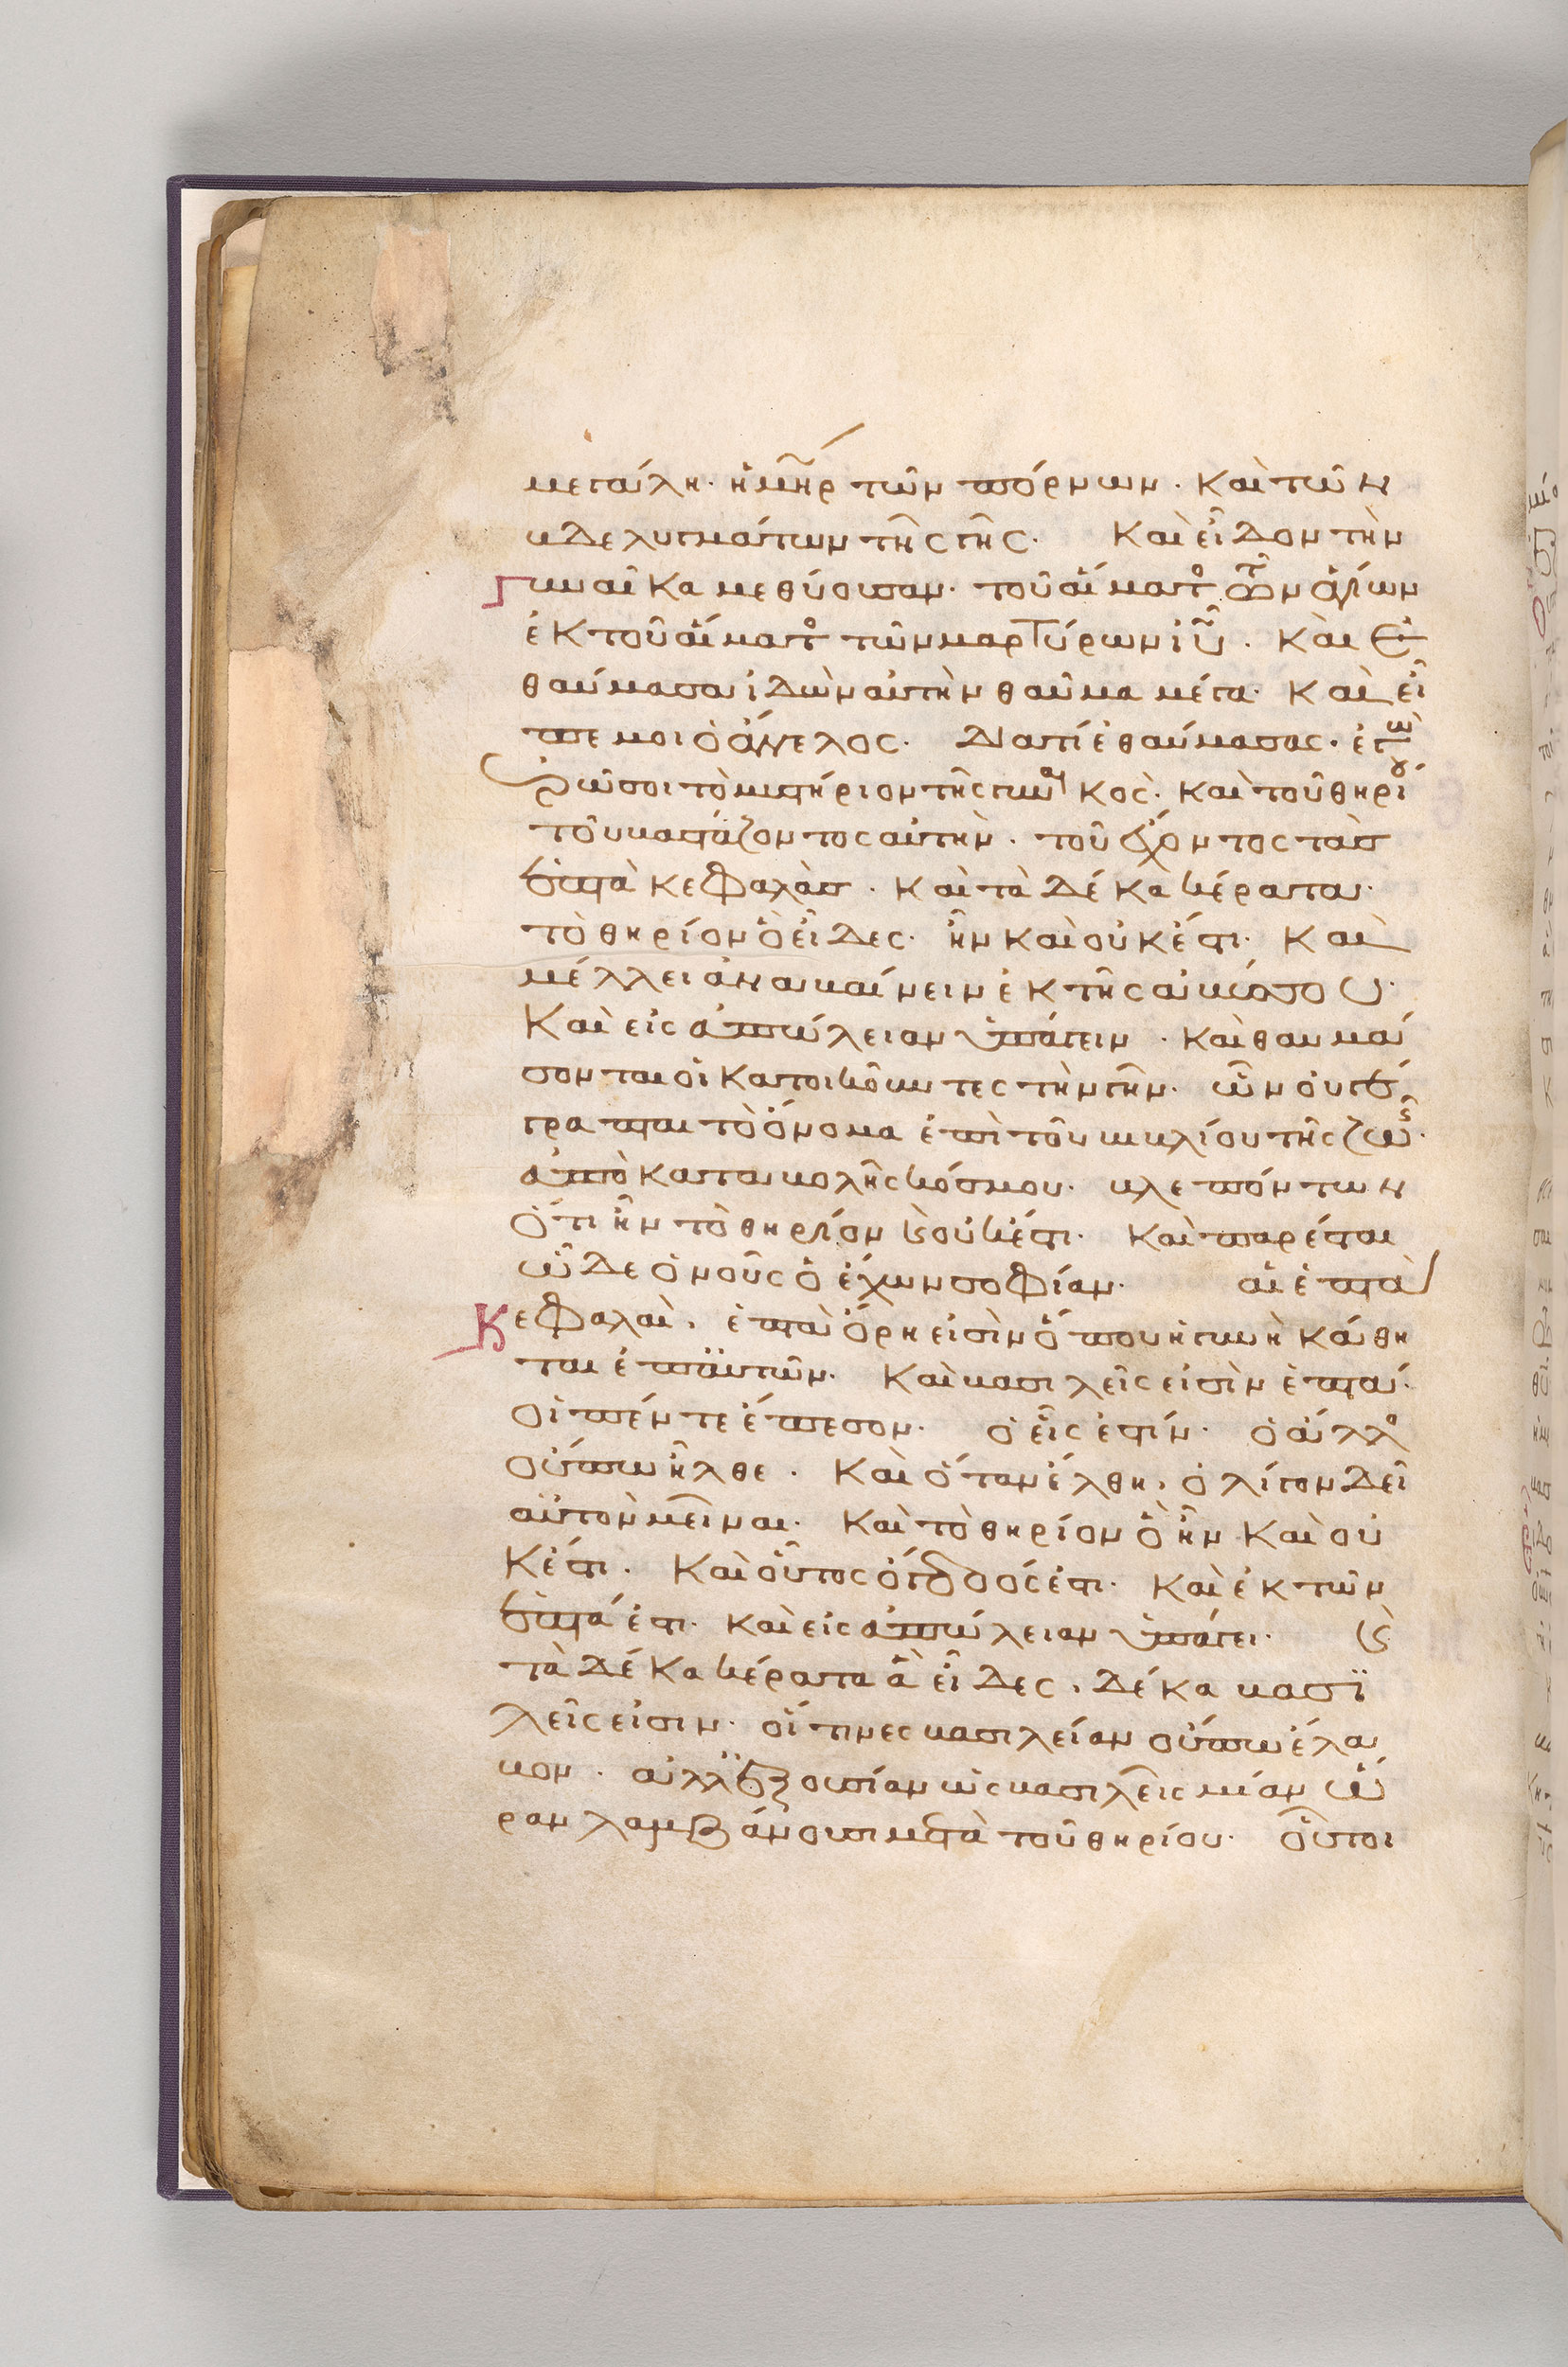 μεγάλη· ἡ μ̅η̅ρ τῶν πόρνων· καὶ τῶν
βδελυγμάτων τῆς γῆς· Καὶ εἶδον τὴν
γυναῖκα μεθύουσαν· τοῦ αἵματο τῶν ἁγίων
ἐκ τοῦ αἵματο τῶν μαρτύρων ἰ̅υ̅· Καὶ ἐ
θαύμασα ἰδὼν αὐτὴν θαῦμα μέγα· Καὶ εἶ
πέ μοι ὁ ἄγγελος· Διατί ἐθαύμασας· ἐγὼ
ἐρῶ σοι τὸ μυστήριον τῆς γυναικός· καὶ τοῦ θηρίου
τοῦ βαστάζοντος αὐτὴν· τοῦ ἔχοντος τὰσ
ἑπτὰ κεφαλὰσ· καὶ τὰ δέκα κέρατα·
τὸ θηρίον ὃ εἶδες· ἦν καὶ οὐκ ἔστι· Καὶ
μέλλει ἀναβαίνειν ἐκ τῆς ἀβύσσου·
Καὶ εἰς ἀπώλειαν ὑπάγειν· καὶ θαυμά
σονται οἱ κατοικοῦντες τὴν γῆν· ὧν οὐ γέ
γραπται τὸ ὄνομα ἐπὶ τοῦ βιβλίου τῆς ζωῆς·
ἀπὸ καταβολῆς κόσμου· βλεπόντων
ὅτι ἦν τὸ θηρίον κ οὐκ ἔστι· Καὶ παρέσται
ὧδε ὁ νοῦς ὁ ἔχων σοφίαν· αἱ ἑπτὰ
Κεφαλαὶ, ἑπτὰ ὄρη εἰσὶν ὅπου ἡ γυνὴ κάθη
ται ἐπ' αὐτῶν· Καὶ βασιλεῖς εἰσὶν ἑπτά·
οἱ πέντε ἔπεσον· ὁ εἷς ἐστίν· ὁ ἄλλο
οὔπω ἦλθε· Καὶ ὅταν ἔλθη, ὀλίγον δεῖ
αὐτὸν μεῖναι· Καὶ τὸ θηρίον ὃ ἦν καὶ οὐ
κ ἔστι· Καὶ οὗτος ὄγδοός ἐστι· Καὶ ἐκ τῶν
ἑπτά ἐστι· καὶ εἰς ἀπώλειαν ὑπάγει· κ
τὰ δέκα κέρατα ἃ εἶδες, δέκα βασϊ
λεῖς εἰσιν· οἵτινες βασιλείαν οὔπω ἔλα
βον· ἀλλ' ἐξουσίαν ὡς βασιλεῖς μίαν ὥ
ραν λαμβάνουσι μετὰ τοῦ θηρίου· οὗτοι